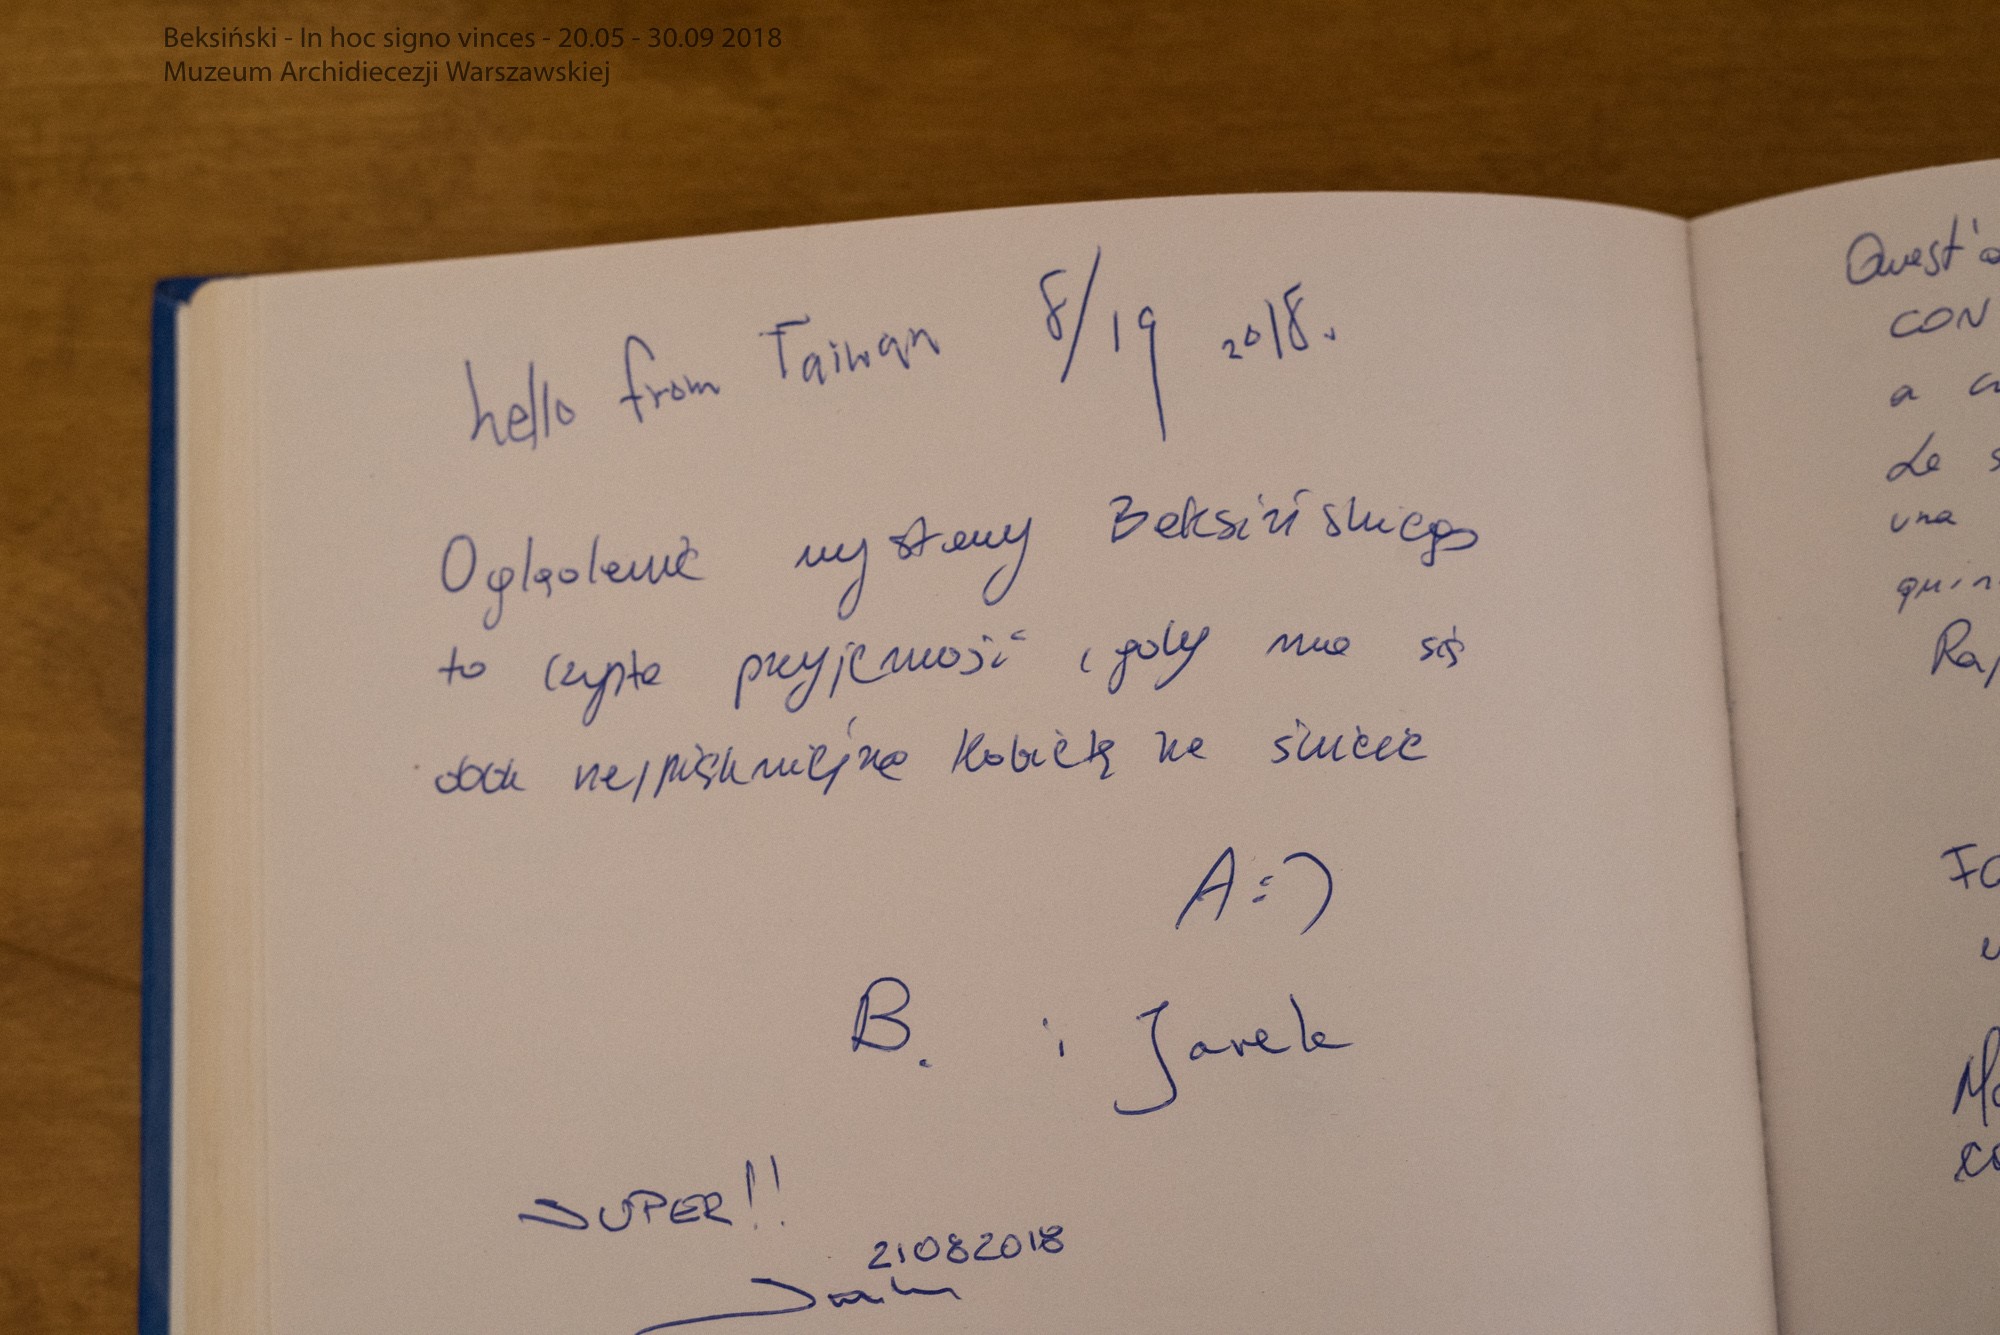 Beksiński - In hoc signo vinces - 20.05 - 30.09 2018
Muzeum Archidiecezji Warszawskiej
hello from Taiwan 8/19 2018.
Oglądanie wystawy Beksińskiego
to czysta przyjemność, gdy ma się
obok najpiękniejszą kobietę na świecie
A :)
B. i Jarek
SUPER!!
21082018
Quest'o
CON
a
Le s
una
quin